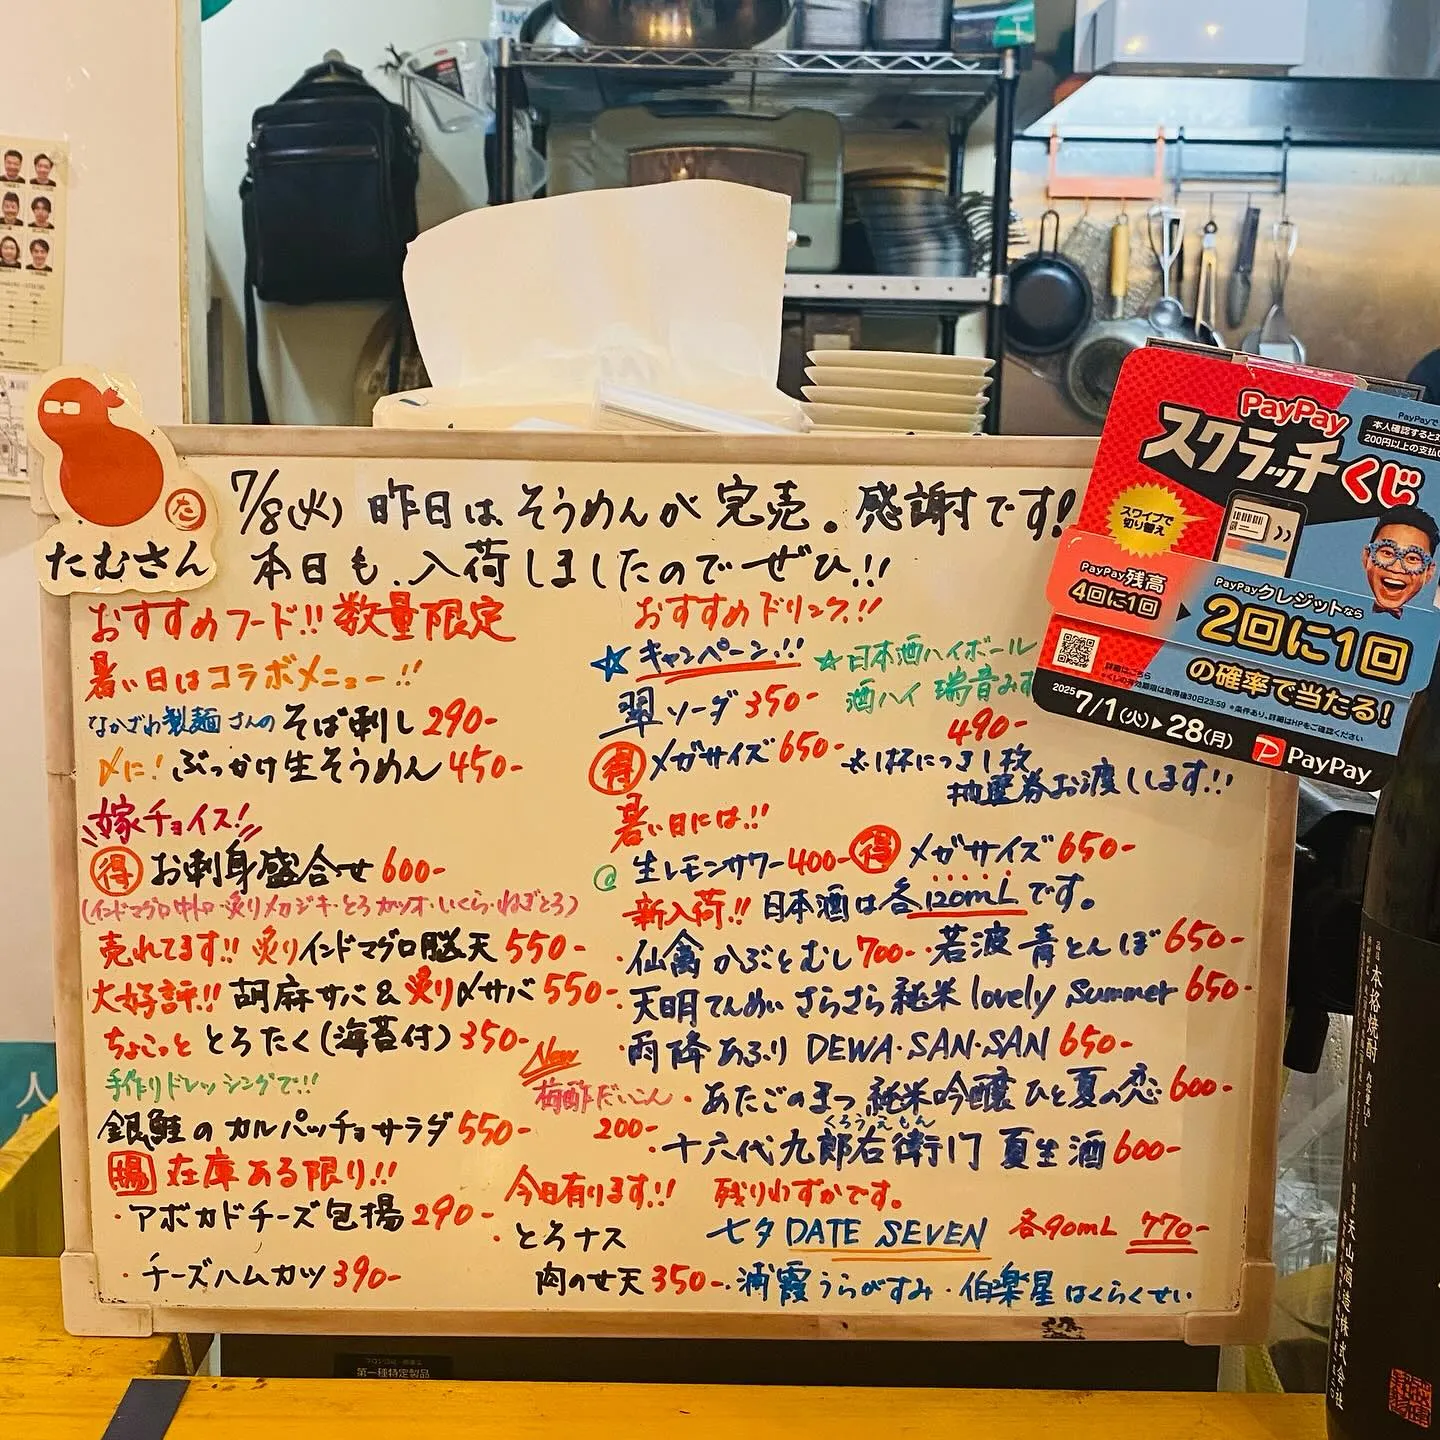 たむさん
た
7/8(火) 昨日は そうめんが 完売。感謝です!
本日も、入荷しましたのでぜひ!!
おすすめフード!! 数量限定
暑い日はコラボメニュー!!
なかざわ製麺さんの そば刺し 290-
〆に! ぶっかけ生そうめん 450-
嫁チョイス!
得 お刺身盛合せ 600-
(インドマグロ中トロ・炙りメカジキ・とろカツオ・いくら・ねぎとろ)
売れてます!! 炙りインドマグロ脳天 550-
大好評!! 胡麻サバ & 炙り〆サバ 550-
ちょこっと とろたく(海苔付) 350-
手作りドレッシングで!!
銀鮭のカルパッチョサラダ 550-
New
梅酢だいこん
200-
揚 在庫ある限り!!
・アボカドチーズ包揚 290-
・チーズハムカツ 390-
今日有ります!!
・とろナス
肉のせ天 350-
おすすめドリンク!!
☆キャンペーン!!!
翠ソーダ 350-
得 メガサイズ 650-
☆日本酒ハイボール
酒ハイ 瑞音みず
490-
1杯につき1枚
抽選券お渡しします!!
暑い日には!!
生レモンサワー 400- 得 メガサイズ 650-
新入荷!! 日本酒は各120mLです。
・仙禽 かぶとむし 700- ・若波 青とんぼ 650-
・天明てんめい さらさら純米 lovely Summer 650-
・雨降あふり DEWA・SAN・SAN 650-
・あたごのまつ 純米吟醸 ひと夏の恋 600-
くろうえもん
・十六代九郎右衛門 夏生酒 600-
残りわずかです。
七夕 DATE SEVEN 各90mL 770-
・浦霞うらがすみ ・伯楽星はくらくせい
PayPay
スクラッチくじ
PayPayで
本人確認すると
200円以上の支払
スワイプで
切り替え
PayPay残高
4回に1回
PayPayクレジットなら
2回に1回
の確率で当たる!
詳細はこちら
2025 7/1(火)▶28(月)
PayPay
本格焼酎
第一種特定製品
人